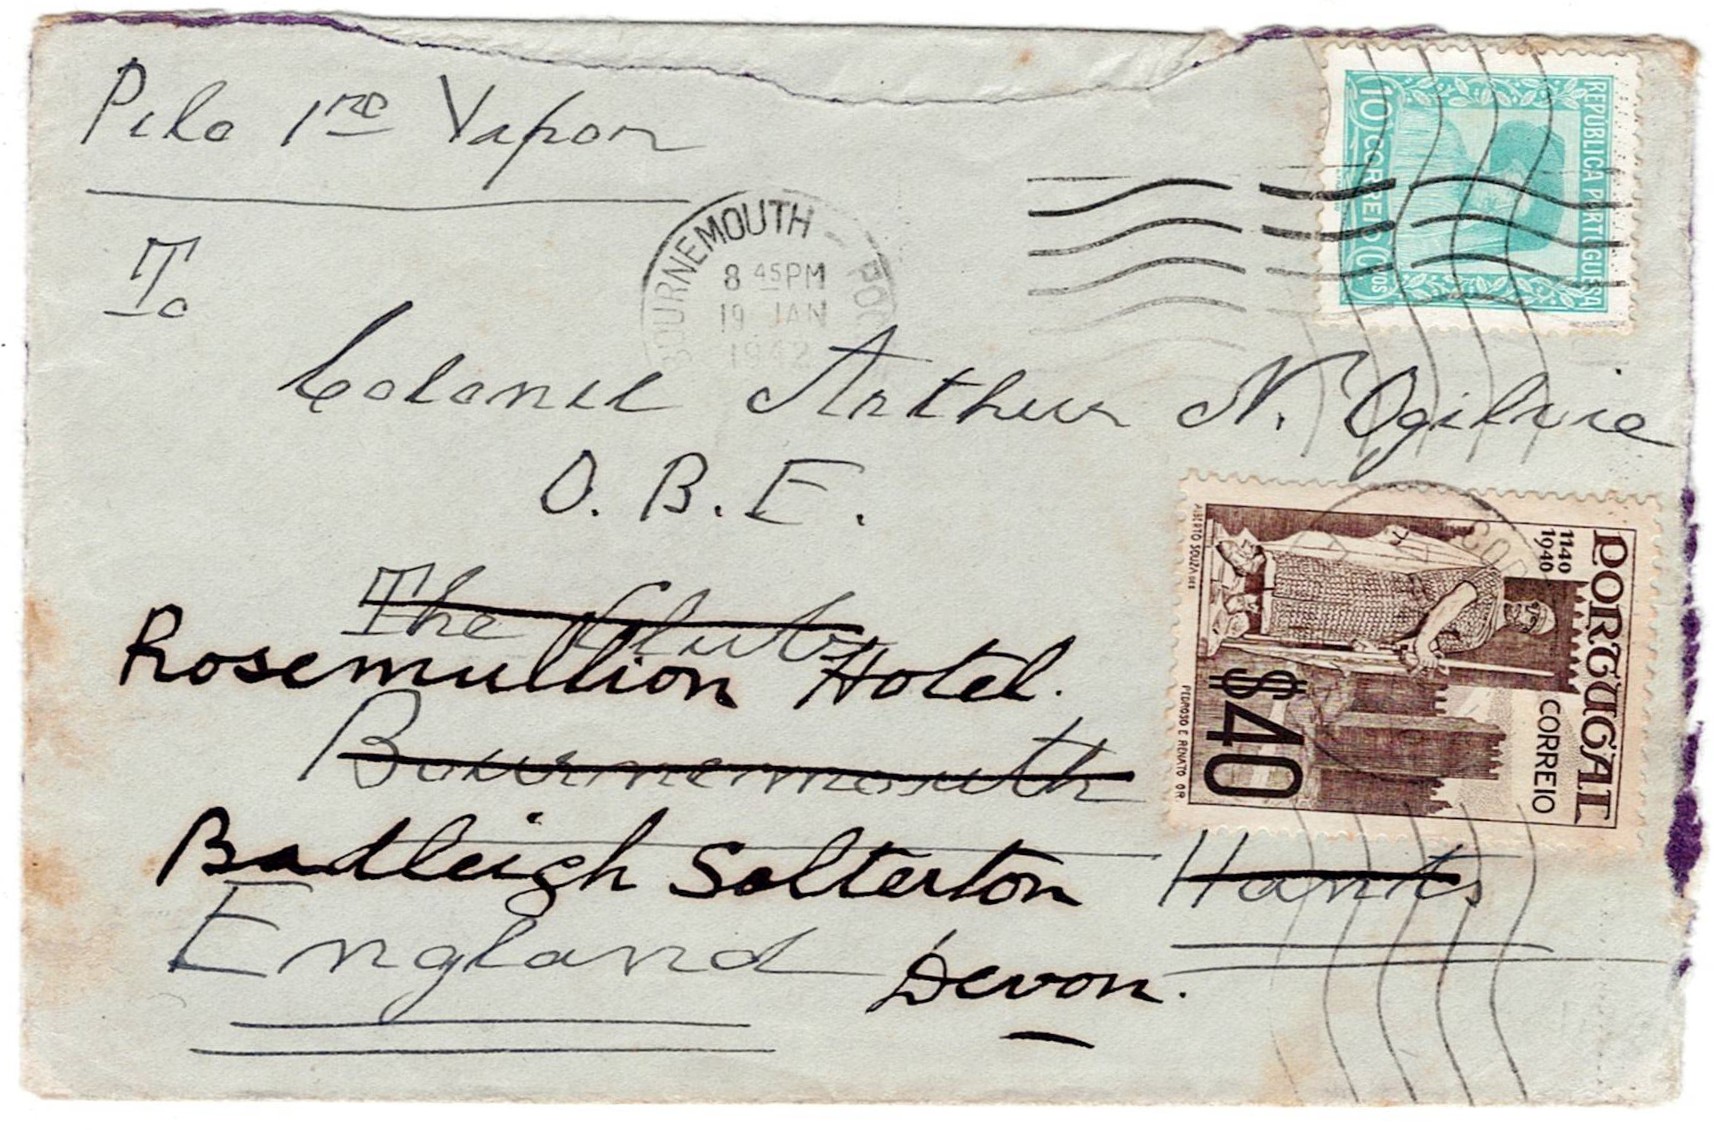 Pelo 1ro Vapor
To
BOURNEMOUTH - POO
8 45PM
19 JAN
1942
REPUBLICA PORTUGUESA
10 CORREIO CVOS
Colonel Arthur N. Ogilvie
O. B. E.
The Club
Rosemullion Hotel.
Bournemouth
Budleigh Salterton
Hants
England
Devon.
PORTUGAL
1140
1940
CORREIO
$40
ALBERTO SOUZA DES
PEDROSO E RENATO GR